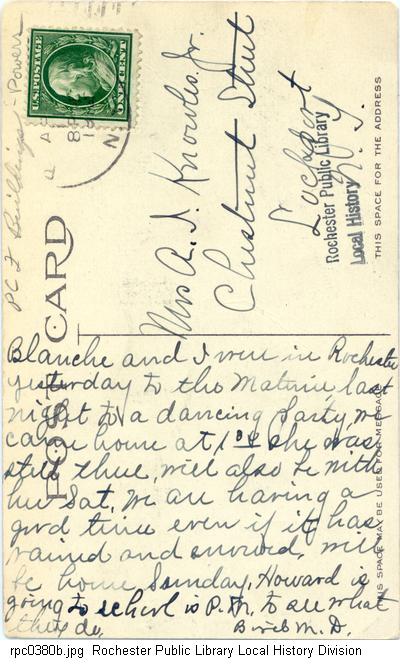 PC I Buildings - Powers
U.S. POSTAGE
ONE CENT
POST CARD
Mrs A. J. Knowles, Jr.
Chestnut Street
Lockport
N. Y.
Rochester Public Library
Local History
THIS SPACE FOR THE ADDRESS
THIS SPACE MAY BE USED FOR MESSAGE
Blanche and I were in Rochester
yesterday to the Matinie, last
night to a dancing party, we
came home at 1 she was
still there, will also be with
her Sat, We are having a
good time even if it has
rained and snowed, will
be home Sunday, Howard is
going to school is P.M, to see what
they do,
M. D.
rpc0380b.jpg Rochester Public Library Local History Division